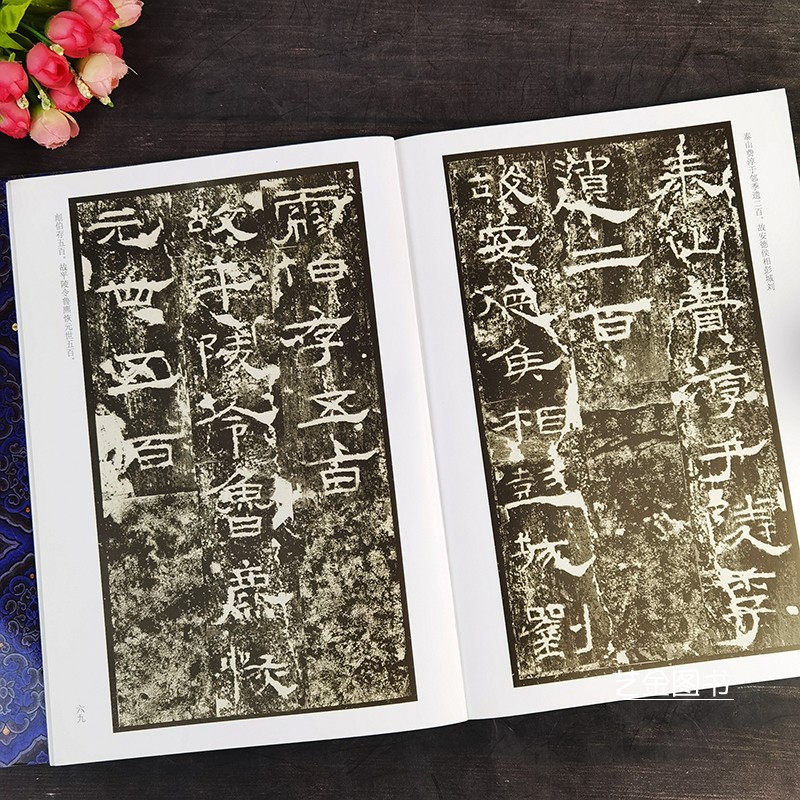 泰山费淳于邻季遗二百。故安德侯相彭城刘
泰山費淳于隣季
遺二百
故安德侯相彭城劉
彪伯存五百
故平陵令魯麃恢
元世五百
彪伯存五百。故平陵令鲁麃恢元世五百。
六九
艺金图书